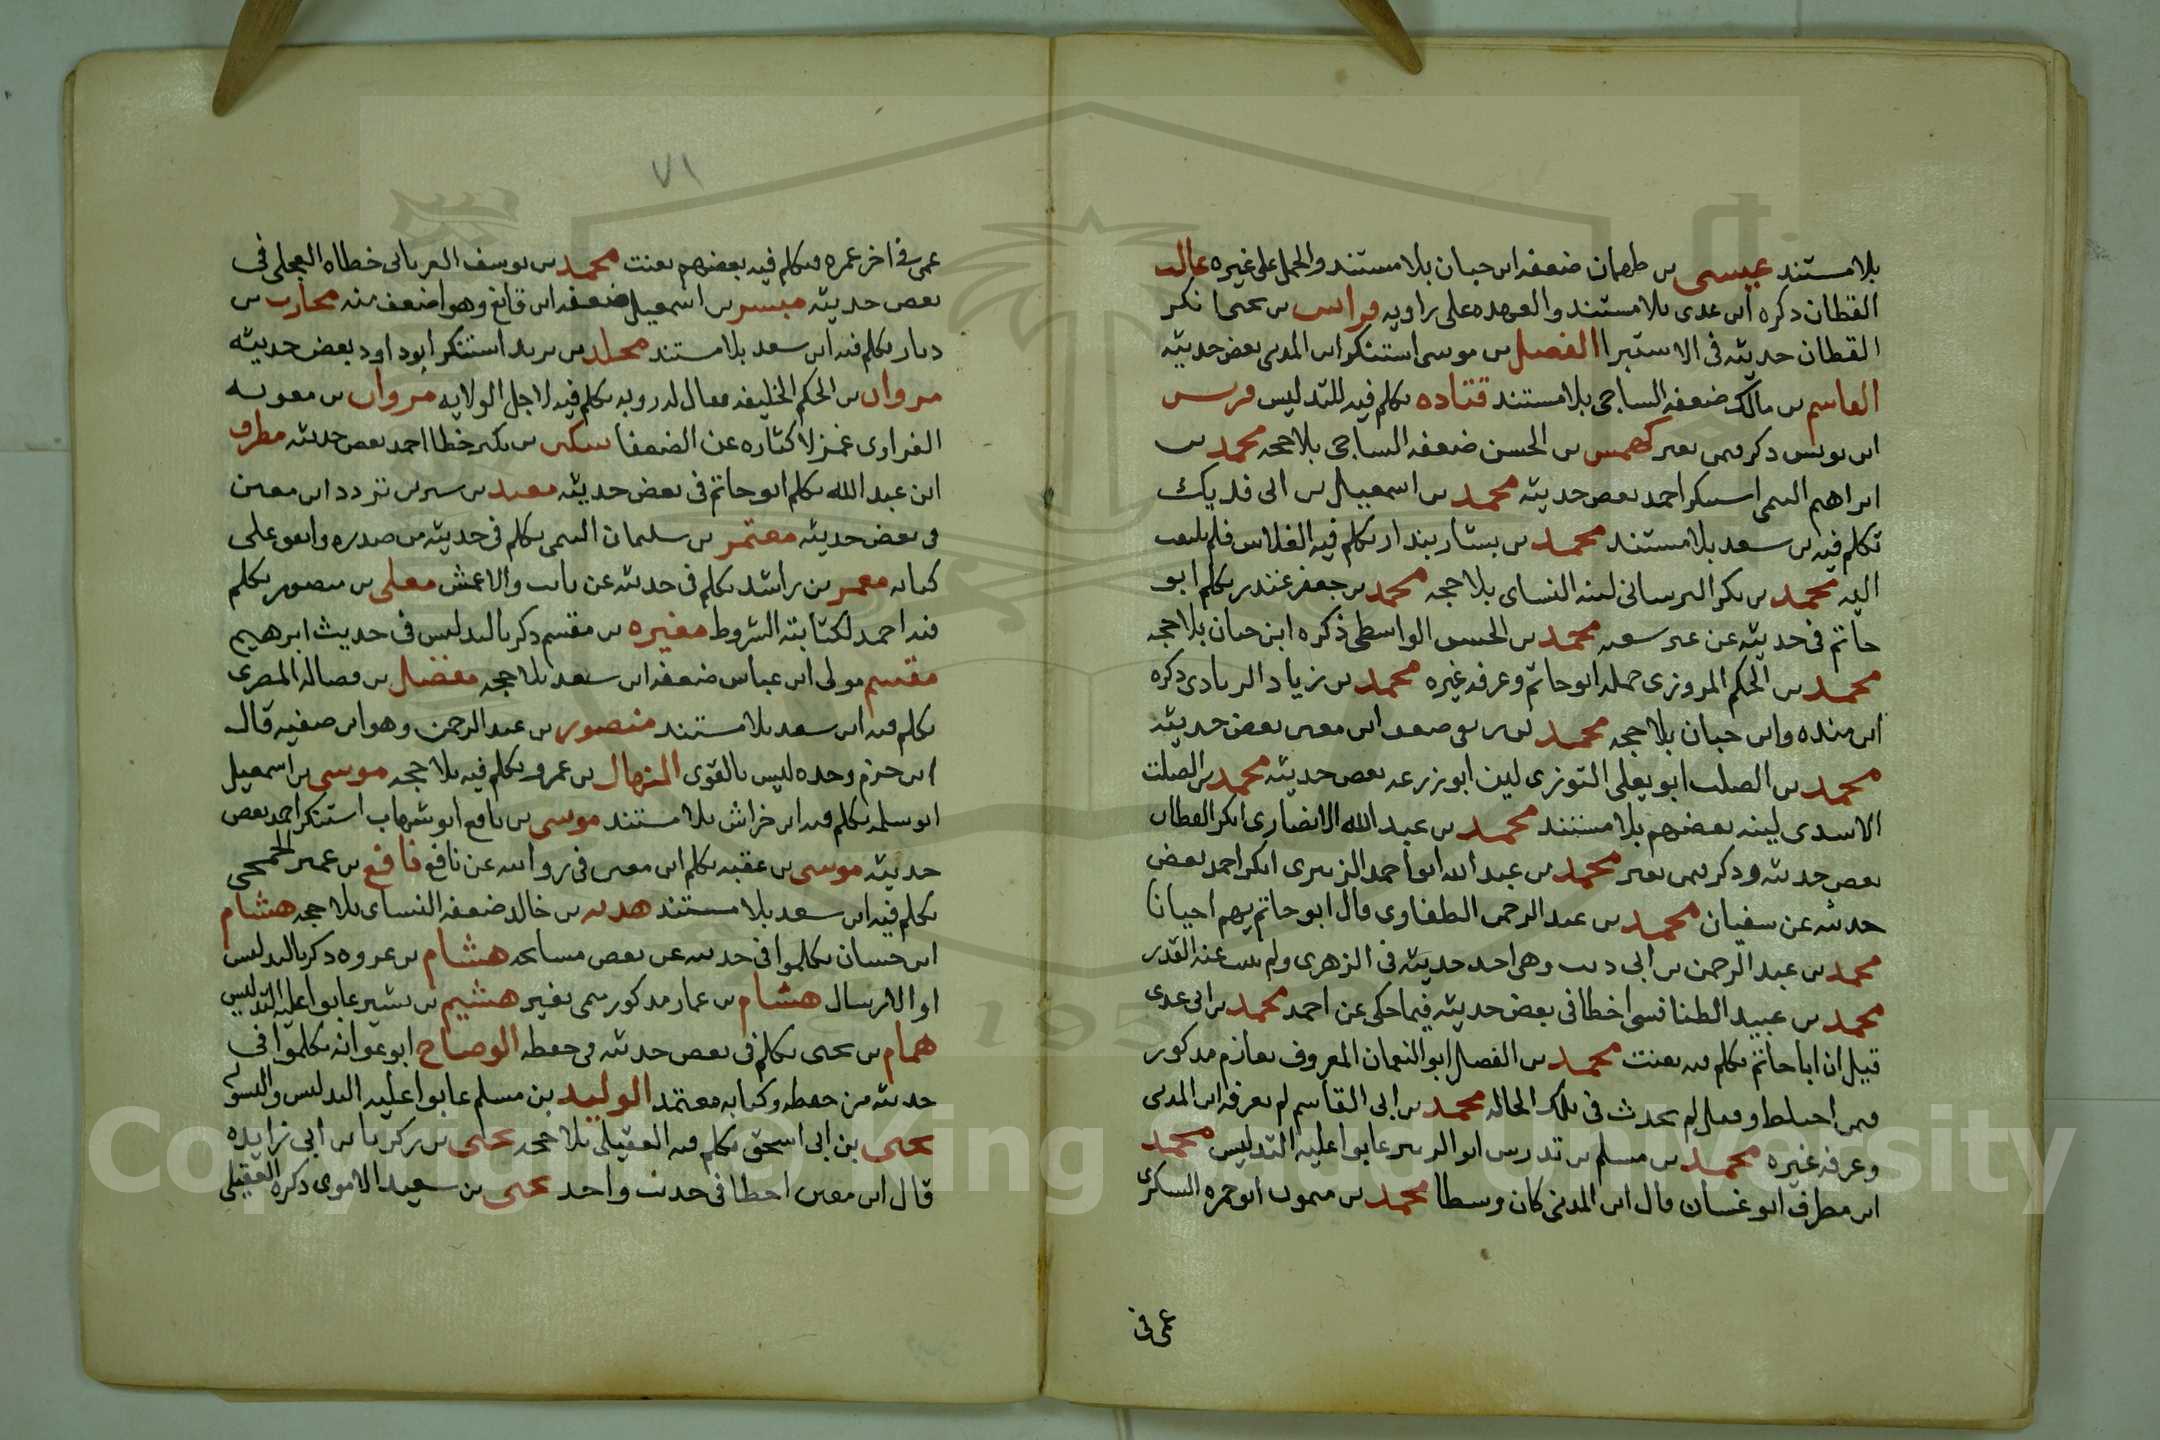 بلا مستند عيسى بن طهمان ضعفه ابن حبان بلا مستند والحمل على غيره غالب
القطان ذكره ابن عدى بلا مستند والعهده على راويه فراس بن يحيى انكر
القطان حديثه في الاستبرا الفضل بن موسى استنكر ابن المدينى بعض حديثه
القاسم بن مالك ضعفه الساجى بلا مستند قتاده تكلم فيه للتدليس قريش
ابن يونس ذكر فيمن تغير كهمس بن الحسن ضعفه الساجى بلا حجه محمد بن
ابراهيم التيمى استنكر احمد بعض حديثه محمد بن اسمعيل بن ابى فديك
تكلم فيه بن سعد بلا مستند محمد بن بشار بندار تكلم فيه الفلاس فلم يلتفت
اليه محمد بن بكر البرسانى لينه النساى بلا حجه محمد بن جعفر غندر تكلم ابو
حاتم في حديثه عن غير سعبه محمد بن الحسن الواسطى ذكره ابن حبان بلا حجه
محمد بن الحكم المروزى جهله ابو حاتم وعرفه غيره محمد بن زياد الزيادى ذكره
ابن منده وابن حبان بلا حجه محمد ابن معين بعض حديثه
محمد بن الصلت ابو يعلى التوزى لين ابو زرعه بعض حديثه محمد بن الصلت
الاسدى لينه بعضهم بلا مستند محمد بن عبد الله الانصارى انكر القطان
بعض حديثه وذكر فيمن تغير محمد بن عبد الله ابو احمد الزبيرى انكر احمد بعض
حديثه عن سفيان محمد بن عبد الرحمن الطفاوى قال ابو حاتم يهم احيانا
محمد بن عبد الرحمن بن ابى ذيب وهى احمد حديثه في الزهرى ولم يثبت عنه القدر
محمد بن عبيد الطنافسى اخطا في بعض حديثه فيما حكى عن احمد محمد بن ابى عدى
قيل ان ابا حاتم تكلم فيه بعنت محمد بن الفضل ابو النعمان المعروف بعازم مدكور
فيمن اختلط وقيل لم يحدث في تلك الحاله محمد بن ابى القاسم لم يعرفه ابن المدينى
وعرفه غيره محمد بن مسلم بن تدرس ابو الزبير عابوا عليه التدليس محمد
ابن مطرف ابو غسان قال ابن المدينى كان وسطا محمد بن ميمون ابو حمزه السكرى
عمى فى
٧١
عمى في اخر عمره فتكلم فيه بعضهم بعنت محمد بن يوسف الفريابى خطاه العجلى فى
بعض حديثه مبشر بن اسمعيل ضعفه ابن قانع وهو اضعف منه محارب بن
دثار تكلم فيه ابن سعد بلا مستند مخلد بن يزيد استنكر ابو داود بعض حديثه
مروان بن الحكم الخليفه يقال له رويه تكلم فيه لاجل الولايه مروان بن معويه
الفزارى غمز لاكثاره عن الضعفا مسكين بن بكير خطا احمد بعض حديثه مطرف
ابن عبد الله تكلم ابو حاتم فى بعض حديثه معبد بن سيرين تردد ابن معين
فى بعض حديثه معتمر بن سليمان التيمى تكلم فى حديثه من صدره واتفق على
كتابه معمر بن راشد تكلم فى حديثه عن ثابت والاعمش معلى بن منصور تكلم
فيه احمد لكتابته الشروط مغيره بن مقسم ذكر بالتدليس فى حديث ابرهيم
مقسم مولى ابن عباس ضعفه ابن سعد بلا حجه مفضل بن فضاله المصرى
تكلم فيه ابن سعد بلا مستند منصور بن عبد الرحمن وهو ابن صفيه قال
ابن حزم وحده ليس بالقوى المنهال بن عمرو تكلم فيه بلا حجه موسى بن اسمعيل
ابو سلمه تكلم فيه ابن خراش بلا مستند موسى بن نافع ابو شهاب استنكر احمد بعض
حديثه موسى بن عقبه تكلم ابن معين فى روايته عن نافع نافع بن عمر الجمحى
تكلم فيه ابن سعد بلا مستند هدبه بن خالد ضعفه النساى بلا حجه هشام
ابن حسان تكلموا فى حديثه عن بعض مشايخه هشام بن عروه ذكر بالتدليس
او الارسال هشام بن عمار مدكور فيمن تغير هشيم بن بشير عابوا عليه التدليس
همام بن يحيى تكلم فى بعض حديثه فى حفظه الوضاح ابو عوانه تكلموا فى
حديثه من حفظه وكتابه معتمد الوليد بن مسلم عابوا عليه التدليس والتسويه
يحيى بن ابى اسحق تكلم فيه العقيلى بلا حجه يحيى بن زكريا بن ابى زايده
قال ابن معين اخطا فى حديث واحد يحيى بن سعيد الاموى ذكره العقيلى
Copyright © King Saud University
195